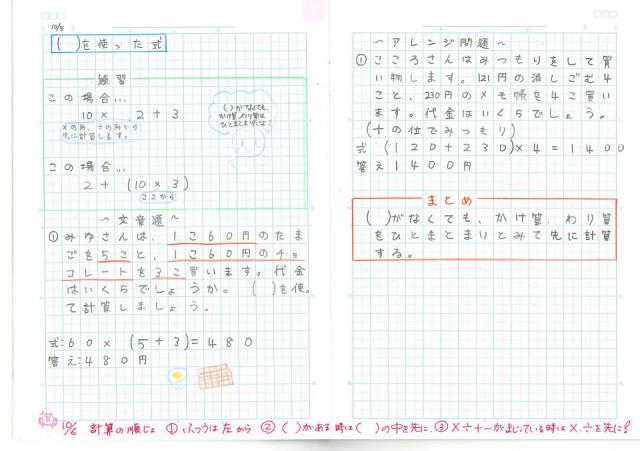 10/5
( )を使った式
練習
この場合…
10 × 2 + 3
×の所、÷の所から
先に計算します。
( )がなくても、
かけ算、わり算は
ひとまとまりだよ!
この場合…
2 + (10 × 3)
ここから
〜文章題〜
① みゆさんは、1こ60円のたま
ごを5こと、1こ60円のチョ
コレートを3こ買います。代金
はいくらでしょうか。( )を使っ
て計算しましょう。
式:60×(5+3)=480
答え:480円
〜アレンジ問題〜
① こころさんはみつもりをして買
い物します。121円の消しごむ4
こと、230円のメモ帳を4こ買い
ます。代金はいくらでしょう。
(十の位でみつもり)
式 (120+230)×4=1400
答え1400円
まとめ
( )がなくても、かけ算、わり算
をひとまとまりとみて先に計算
する。
10/6 計算の順じょ ①ふつうは左から ②( )がある時は( )の中を先に、③×÷+-がまじっている時は×、÷を先に!